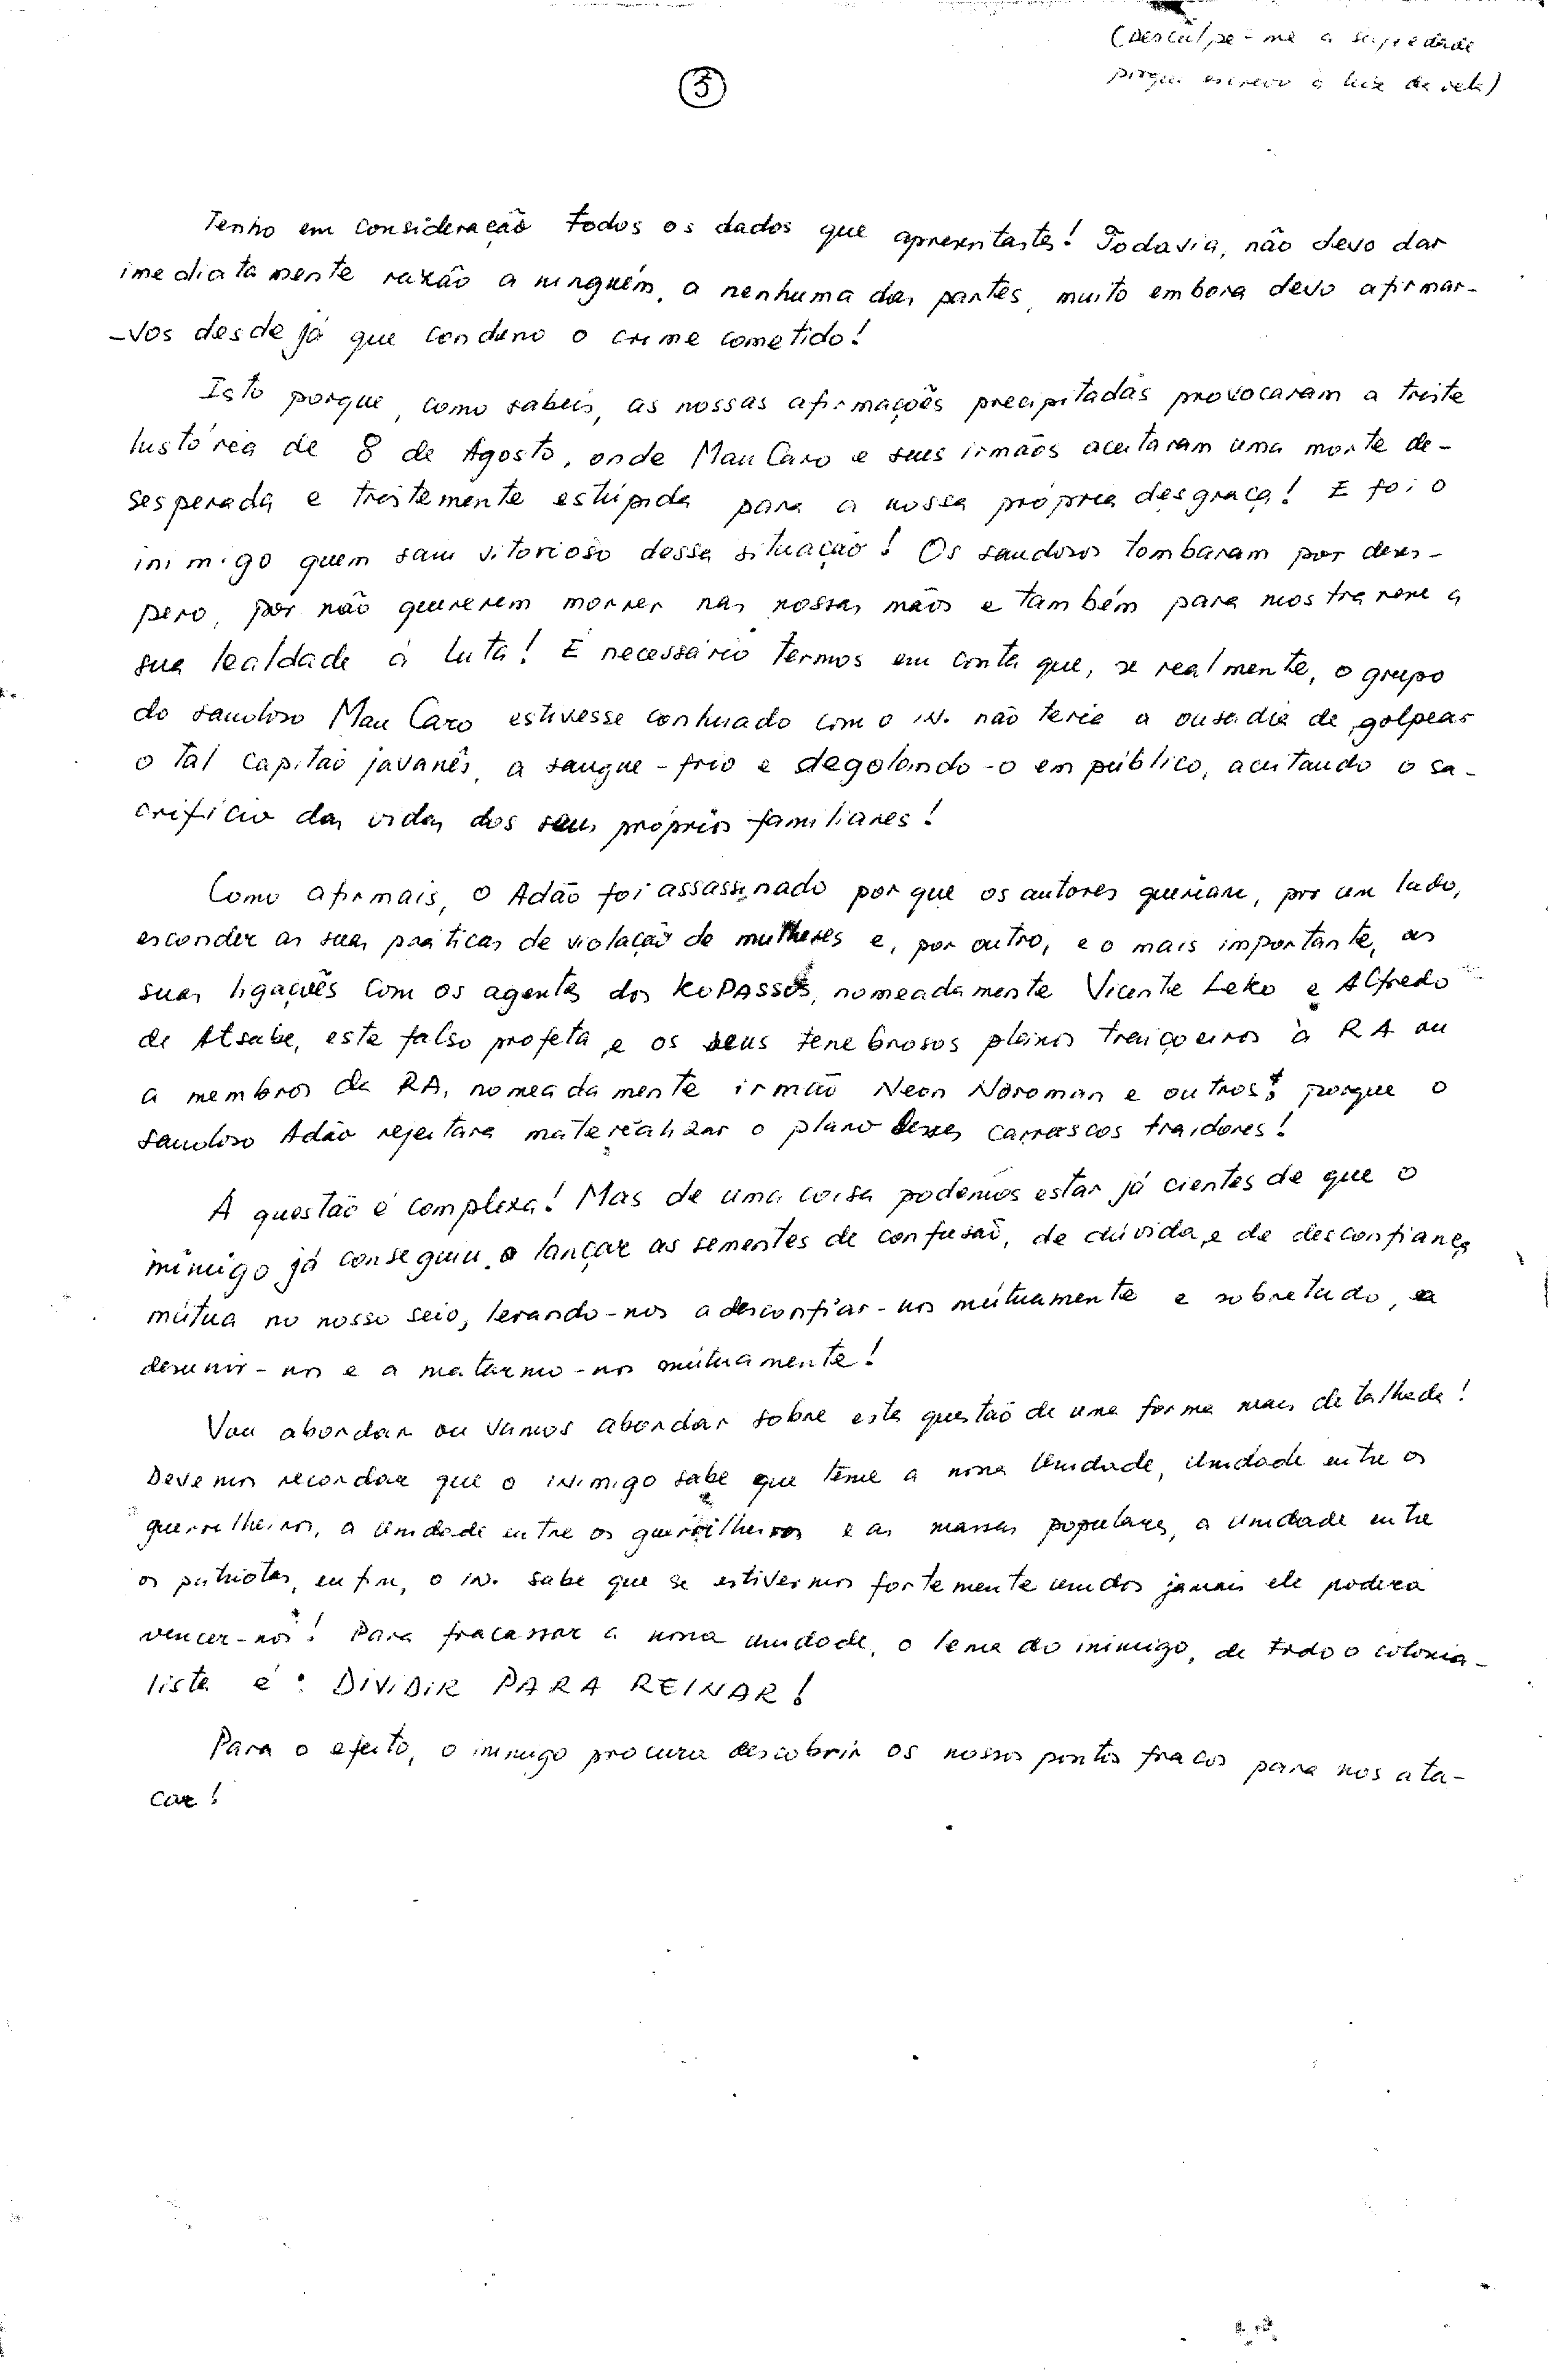 (Desculpe-me a sujedade
porque escrevo à luz da vela)
5
Tenho em consideração todos os dados que apresentastes! Todavia, não devo dar
imediatamente razão a ninguém, a nenhuma das partes, muito embora devo afirmar-
-vos desde já que condeno o crime cometido!
Isto porque, como sabeis, as nossas afirmações precipitadas provocaram a triste
história de 8 de Agosto, onde Mau Caro e seus irmãos aceitaram uma morte de-
sesperada e tristemente estúpida para a nossa própria desgraça! E foi o
inimigo quem saiu vitorioso dessa situação! Os saudosos tombaram por deses-
pero, por não quererem morrer nas nossas mãos e também para mostrarem a
sua lealdade à luta! É necessário termos em conta que, se realmente, o grupo
do saudoso Mau Caro estivesse conluiado com o in. não teria a ousadia de golpear
o tal capitão javanês, a sangue-frio e degolando-o em público, aceitando o sa-
crifício das vidas dos seus próprios familiares!
Como afirmais, o Adão foi assassinado porque os autores queriam, por um lado,
esconder as suas práticas de violação de mulheres e, por outro, e o mais importante, as
suas ligações com os agentes dos KOPASSUS, nomeadamente Vicente Leko e Alfredo
de Atsabe, este falso profeta, e os seus tenebrosos planos traiçoeiros à RA ou
a membros da RA, nomeadamente irmão Neon Noroman e outros; porque o
saudoso Adão rejeitara materealizar o plano desses carrascos traidores!
A questão é complexa! Mas de uma coisa podemos estar já cientes de que o
inimigo já conseguiu lançar as sementes de confusão, de dúvida, e de desconfiança
mútua no nosso seio, levando-nos a desconfiar-nos mútuamente e sobretudo, a
desunir-nos e a matarmo-nos mútuamente!
Vou abordar ou vamos abordar sobre esta questão de uma forma mais detalhada!
Devemos recordar que o inimigo sabe que teme a nossa Unidade, Unidade entre os
guerrilheiros, a Unidade entre os guerrilheiros e as massas populares, a Unidade entre
os patriotas, enfim, o in. sabe que se estivermos fortemente unidos jamais ele poderá
vencer-nos! Para fracassar a nossa unidade, o lema do inimigo, de todo o colonia-
lista é: DIVIDIR PARA REINAR!
Para o efeito, o inimigo procura descobrir os nossos pontos fracos para nos ata-
car!